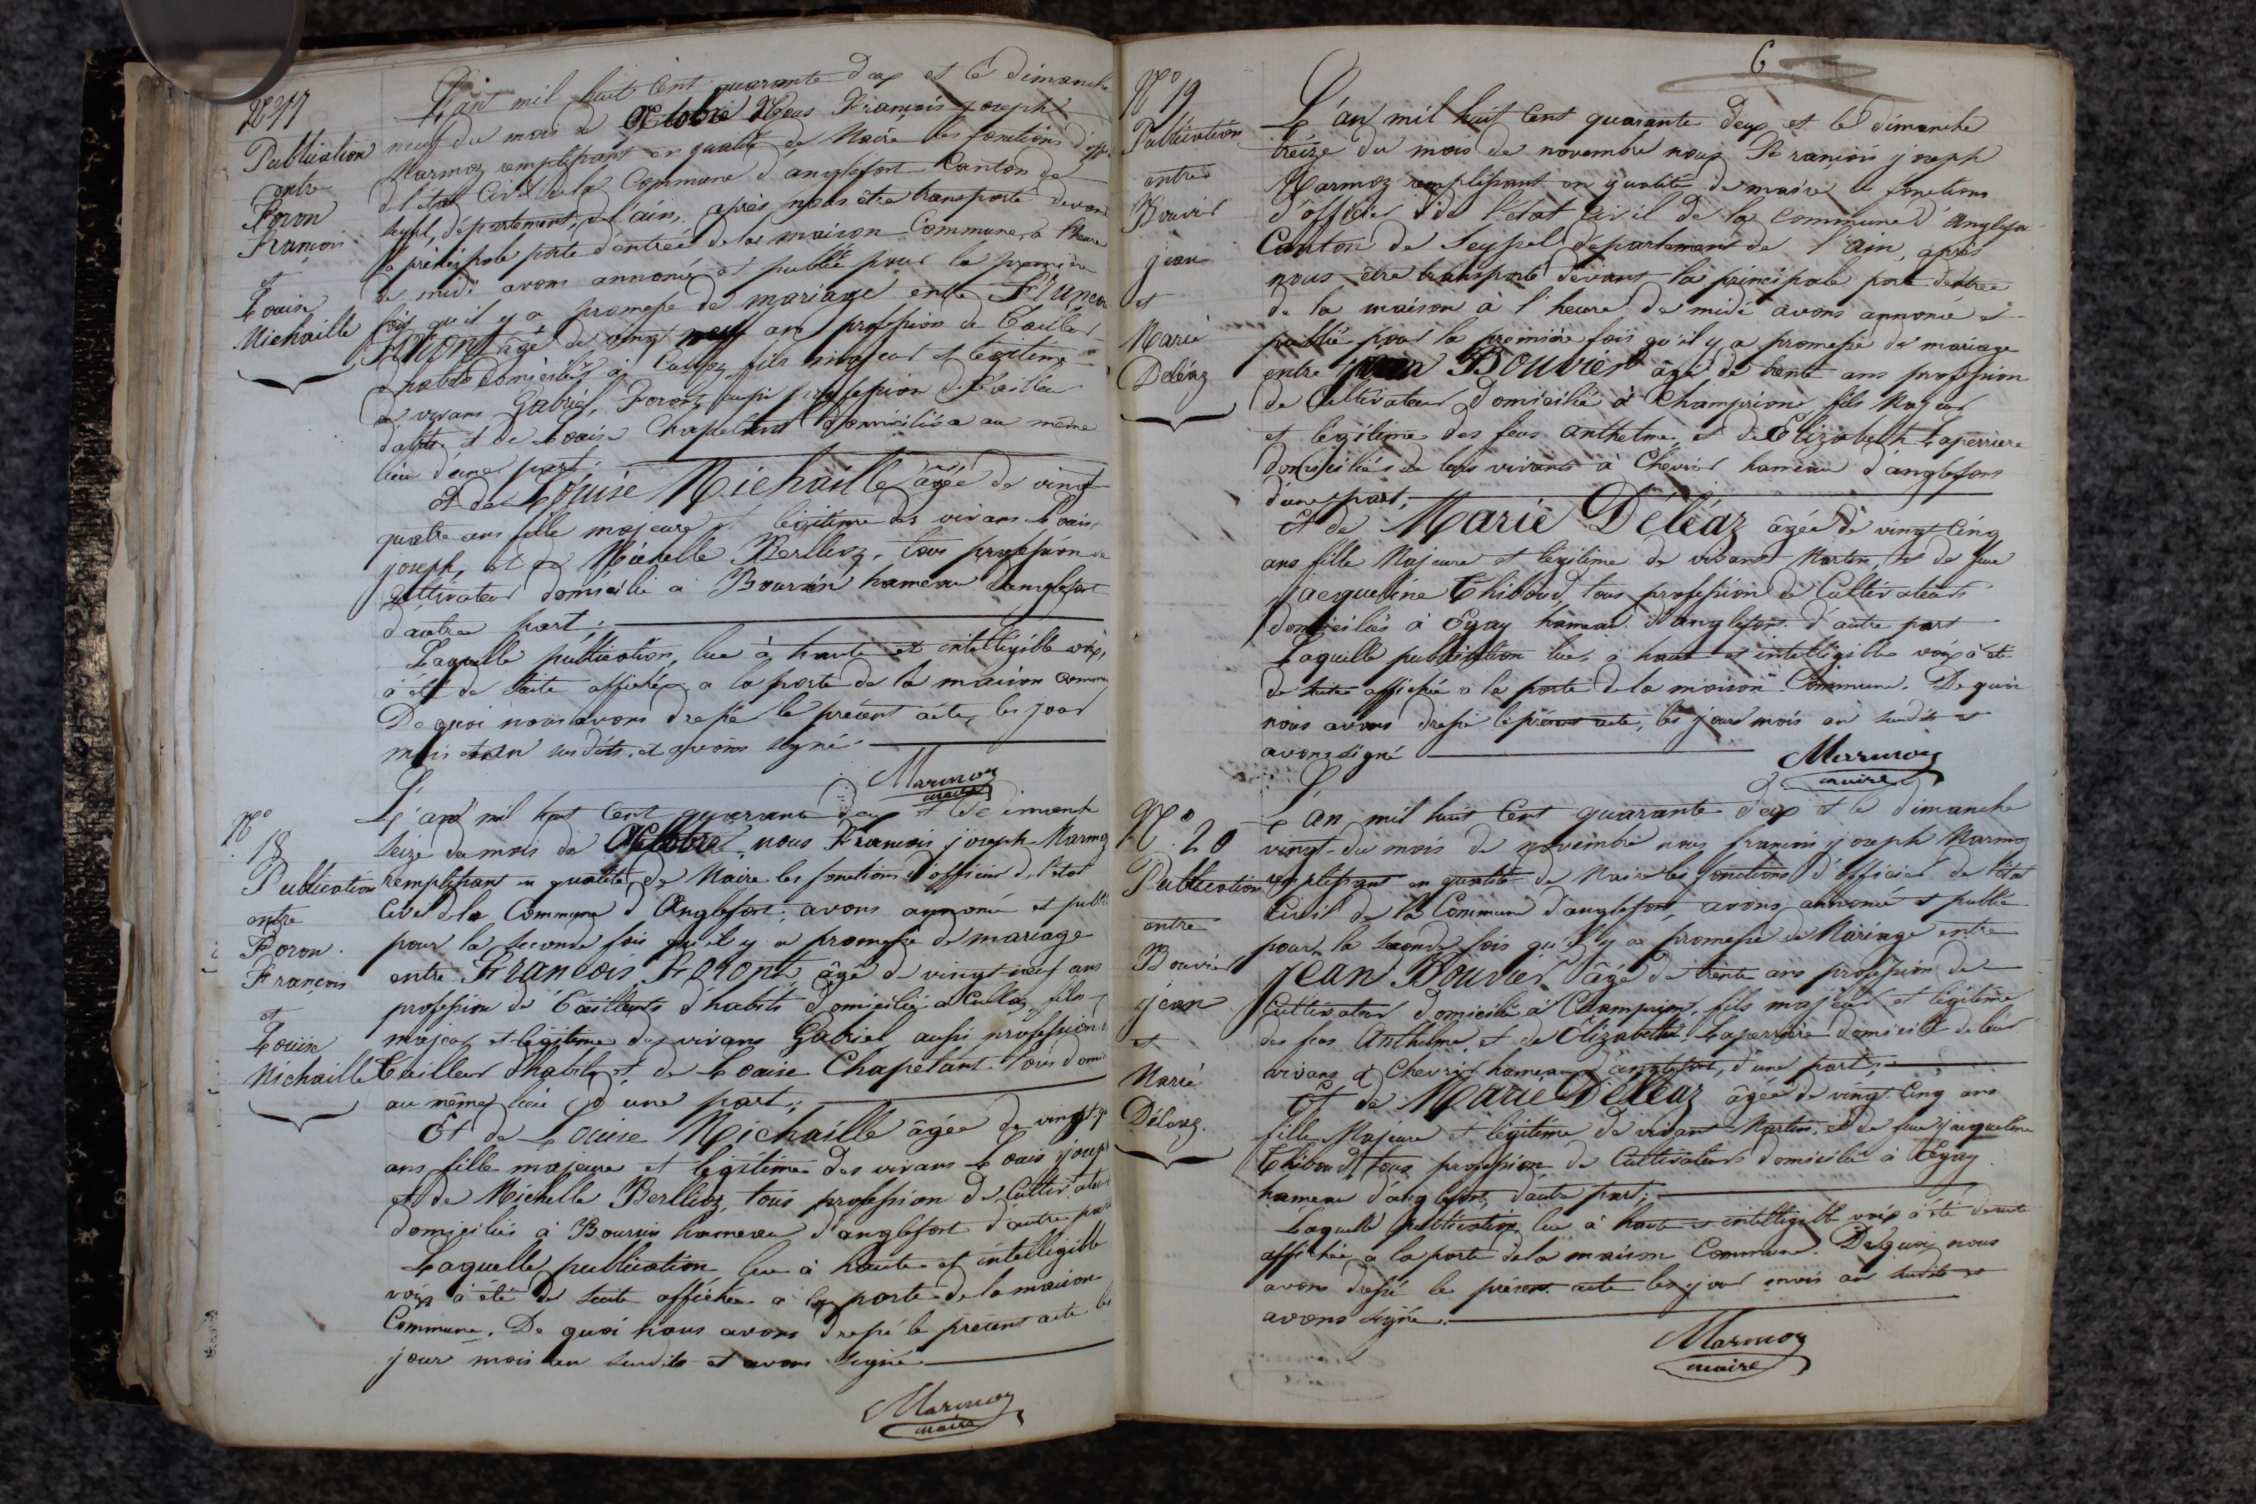 Nº 17
Publication
entre
Foron
François
et
Louise
Michaille
L'an mil huit Cent quarante deux et le dimanche
neuf du mois de Octobre Nous François joseph
Marmoz remplissant en qualité de Maire les fonctions d'offi
de l'état Civil de la Commune d'anglefort Canton de
Seyssel, département de l'ain, après nous être transporté devant
la principale porte d'entrée de la maison Commune, à l'heure
de midi avons annoncé et publié pour la première
fois qu'il y a promesse de mariage entre François
Foront âgé de vingt neuf ans profession de Tailleur
d'habits domicilié à Culloz fils majeur et légitime
des vivans Gabriel Foront aussi profession de Tailleur
d'habits et de Louise Chapellant domiciliés au même
lieu d'une part;
et de Louise Michaille âgée de vingt
quatre ans fille majeure et légitime des vivans Louis
joseph, et de Michelle Berllioz, tous profession de
Cultivateur domicilié à Boursin hameau d'anglefort
d'autre part;
Laquelle publication, lue à haute et intelligible voix,
à été de suite affichée a la porte de la maison commune
De quoi nous avons dressé le présent acte, les jour
mois et an susdits. et avons signé
Marmoz
maire
Nº
18
Publication
entre
Foron
François
et
Louise
Michaille
L'an mil huit Cent quarante deux et le dimanche
seize du mois de Octobre, nous François joseph Marmoz
remplissant en qualité de Maire les fonctions d'officier de l'état
Civil de la Commune d'Anglefort, avons annoncé et publié
pour la seconde fois qu'il y a promesse de mariage
entre François Foront, âgé de vingt neuf ans
profession de Tailleurs d'habits domicilié a Culloz, fils
majeur et légitime des vivans Gabriel aussi profession
Tailleur d'habits et de Louise Chapelant tous dom
au même lieu d'une part;
Et de Louise Michaille âgée de vingt q
ans fille majeure et légitime des vivans Louis joseph
et de Michelle Berllioz, tous profession de Cultivateur
domiciliés à Boursin hameau d'anglefort d'autre part
Laquelle publication lue à haute et intelligible
voix à été de suite affichée a la porte de la maison
Commune. De quoi nous avons dressé le présent acte les
jour mois an susdits et avons signé
Marmoz
maire
6
Nº 19
Publication
entre
Bouvier
jean
et
Marie
Deléaz
L'an mil huit Cent quarante deux et le dimanche
treize du mois de novembre nous François joseph
Marmoz remplissant en qualité de maire les fonctions
d'officier de l'état civil de la commune d'Anglefort
Canton de Seyssel département de l'ain, après
nous être transporté devant la principale porte d'entrée
de la maison à l'heure de midi avons annoncé et
publié pour la première fois qu'il y a promesse de mariage
entre jean Bouvier âgé de trente ans profession
de Cultivateur domicilié à Champrion, fils Majeur
et légitime des feus anthelme et de Elizabeth Laperriere
domiciliés de leurs vivants à Chevrier hameau d'anglefort
d'une part;
Et de Marie Déléaz âgée de vingt Cinq
ans fille Majeure et légitime de vivant Martin, et de feue
jacqueline Thiboud, tous profession de Cultivateurs
domiciliés à Eyay hameau d'anglefort d'autre part
Laquelle publication lue, a haute et intelligible voix à été
de suite affichée a la porte de la maison Commune. De quoi
nous avons dressé le présent acte, les jour mois an susdits et
avons signé
Marmoz
maire
Nº 20
Publication
entre
Bouvier
jean
et
Marie
Déléaz.
L'an mil huit Cent quarante deux et le dimanche
vingt du mois de novembre nous francois joseph Marmoz
remplissant en qualité de Maire les fonctions d'officier de l'état
Civil de la Commune d'anglefort, avons annoncé et publié
pour la seconde fois qu'il y a promesse de Mariage entre
Jean Bouvier âgé de trente ans profession de
Cultivateur domicilié à Champrion, fils majeur et légitime
des feus Anthelme et de Elizabeth Laperriere domicilié de leur
vivans à Chevrier hameau d'anglefort, d'une part;
Et de Marie Déléaz âgée de vingt Cinq ans
fille Majeure et légitime de vivant Martin, et de feue jacqueline
Thiboud, tous profession de Cultivateurs domicilié à Eyay
hameau d'anglefort, d'autre part;
Laquelle publication lue à haute et intelligible voix à été de suite
affichée a la porte de la maison Commune. De quoi nous
avons dressé le présent acte les jour mois an susdits et
avons signé.
Marmoz
maire